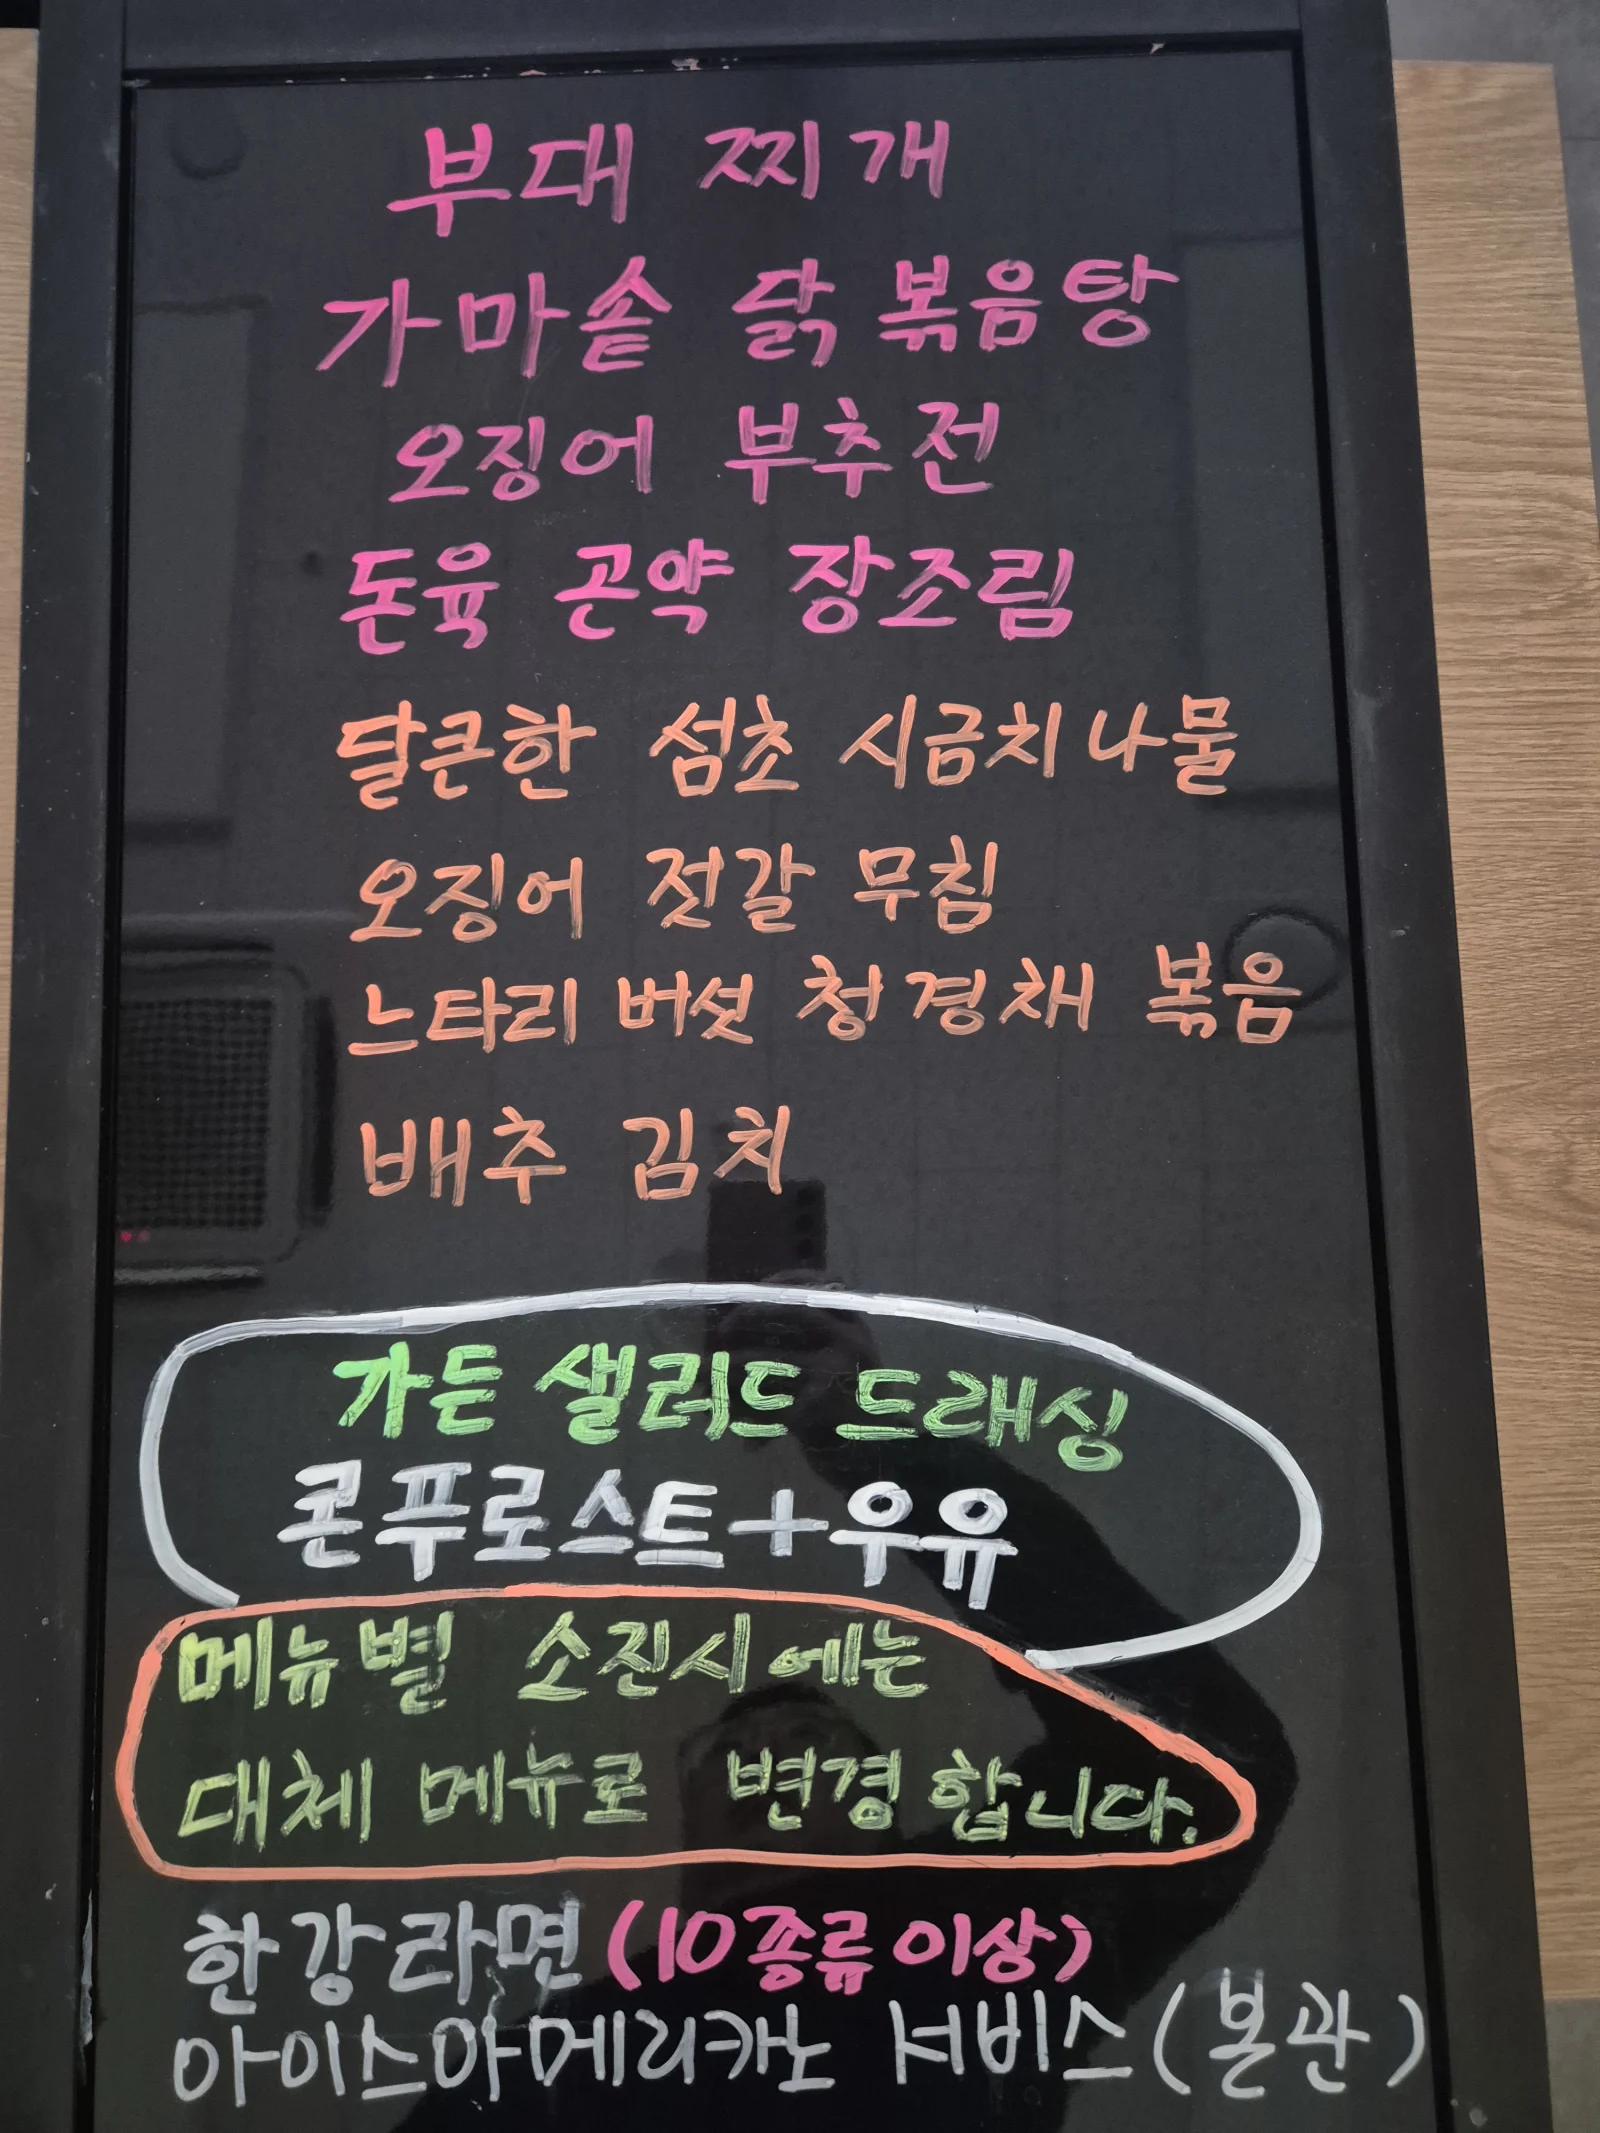 부대 찌개
가마솥 닭 볶음탕
오징어 부추전
돈육 곤약 장조림
달큰한 섬초 시금치나물
오징어 젓갈 무침
느타리 버섯 청경채 볶음
배추 김치
가든 샐러드 드래싱
콘푸로스트+우유
메뉴별 소진시에는
대체 메뉴로 변경합니다.
한강라면(10종류이상)
아이스아메리카노 서비스(본관)